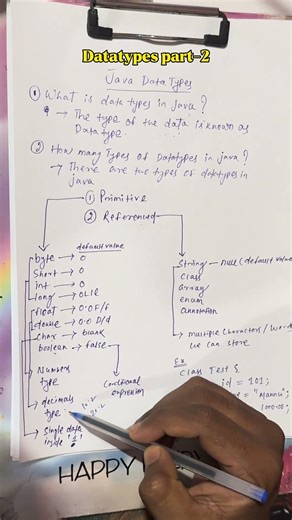 Datatypes part-2
Java Data Types
① What is data types in java?
→ The type of the data is known as
Datatype.
② How many Types of Datatypes in java?
→ There are two types of datatypes in
java
① Primitive
② Referenced
default value
byte → 0
short → 0
int → 0
long → 0L/l
float → 0.0F/f
double → 0.0 D/d
char → blank
boolean → false
String → null (default value
class
array
enum
annotation
→ multiple characters / wor
we can store
Numbers
type
Conditional
expression
→ decimals
type
→ Single data
inside
Ex
class Test {
id = 101;
= "Mannu";
HAPPY